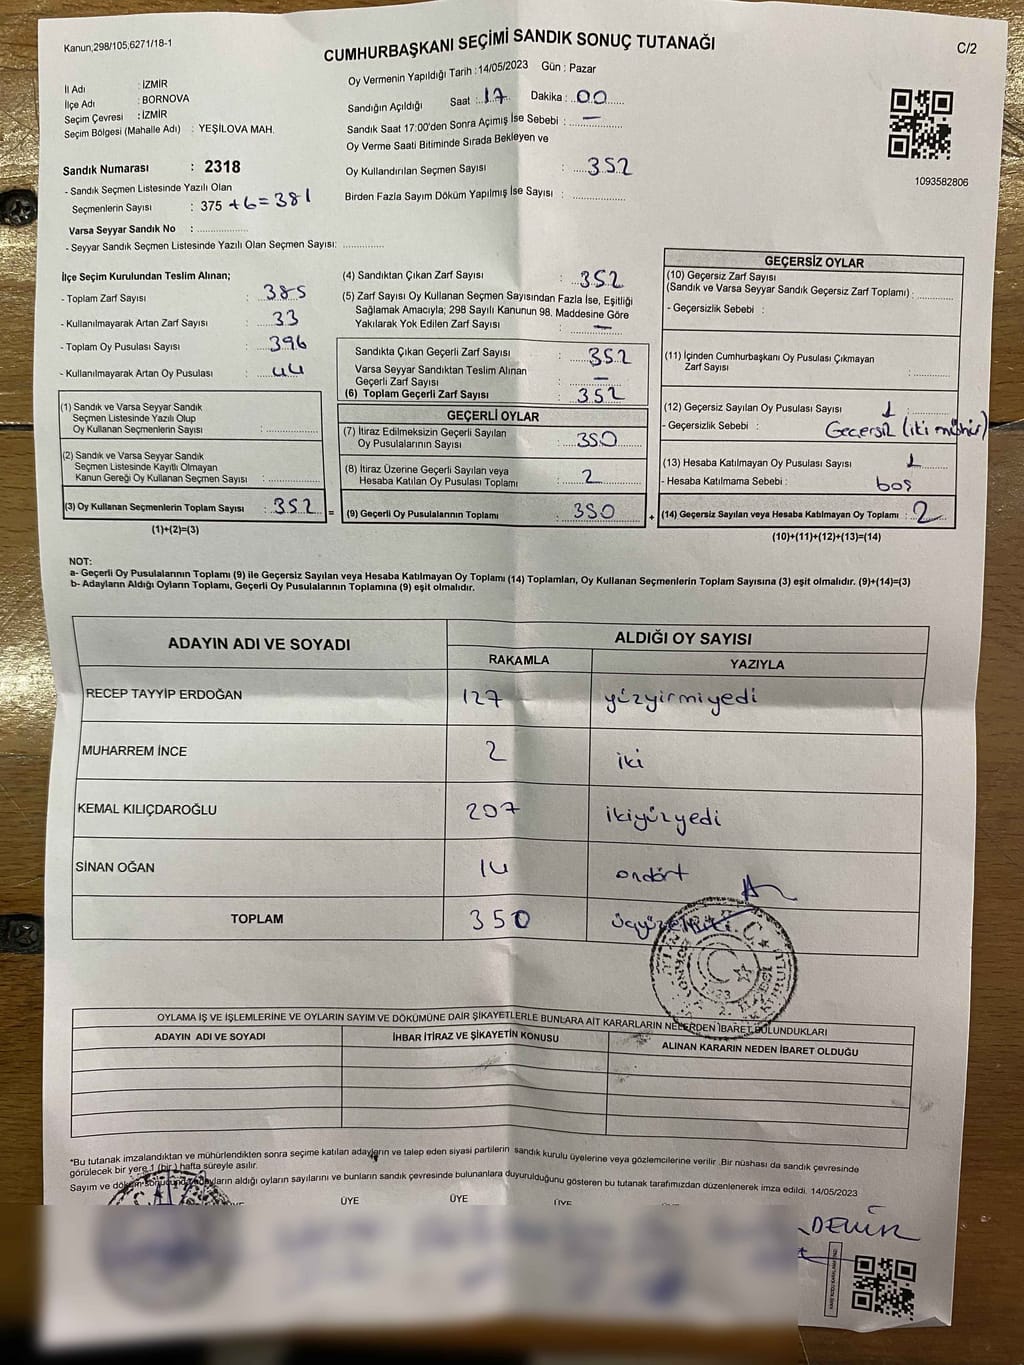 Kanun;298/105,6271/18-1
CUMHURBAŞKANI SEÇİMİ SANDIK SONUÇ TUTANAĞI
C/2
İl Adı : İZMİR
İlçe Adı : BORNOVA
Seçim Çevresi : İZMİR
Seçim Bölgesi (Mahalle Adı) : YEŞİLOVA MAH.
Sandık Numarası : 2318
- Sandık Seçmen Listesinde Yazılı Olan
Seçmenlerin Sayısı : 375 +6=381
Varsa Seyyar Sandık No : ................
- Seyyar Sandık Seçmen Listesinde Yazılı Olan Seçmen Sayısı: ............
Oy Vermenin Yapıldığı Tarih :14/05/2023 Gün : Pazar
Sandığın Açıldığı Saat : 17 Dakika : 00
Sandık Saat 17:00'den Sonra Açımış İse Sebebi : —
Oy Verme Saati Bitiminde Sırada Bekleyen ve
Oy Kullandırılan Seçmen Sayısı : 352
Birden Fazla Sayım Döküm Yapılmış İse Sayısı : ................
1093582806
İlçe Seçim Kurulundan Teslim Alınan;
- Toplam Zarf Sayısı : 385
- Kullanılmayarak Artan Zarf Sayısı : 33
- Toplam Oy Pusulası Sayısı : 396
- Kullanılmayarak Artan Oy Pusulası : 44
(1) Sandık ve Varsa Seyyar Sandık
Seçmen Listesinde Yazılı Olup
Oy Kullanan Seçmenlerin Sayısı : ................
(2) Sandık ve Varsa Seyyar Sandık
Seçmen Listesinde Kayıtlı Olmayan
Kanun Gereği Oy Kullanan Seçmen Sayısı : ................
(3) Oy Kullanan Seçmenlerin Toplam Sayısı : 352 =
(1)+(2)=(3)
(4) Sandıktan Çıkan Zarf Sayısı : 352
(5) Zarf Sayısı Oy Kullanan Seçmen Sayısından Fazla İse, Eşitliği
Sağlamak Amacıyla; 298 Sayılı Kanunun 98. Maddesine Göre
Yakılarak Yok Edilen Zarf Sayısı : —
Sandıkta Çıkan Geçerli Zarf Sayısı : 352
Varsa Seyyar Sandıktan Teslim Alınan
Geçerli Zarf Sayısı : —
(6) Toplam Geçerli Zarf Sayısı : 352
GEÇERLİ OYLAR
(7) İtiraz Edilmeksizin Geçerli Sayılan
Oy Pusulalarının Sayısı : 350
(8) İtiraz Üzerine Geçerli Sayılan veya
Hesaba Katılan Oy Pusulası Toplamı : 2
(9) Geçerli Oy Pusulalarının Toplamı : 350 +
GEÇERSİZ OYLAR
(10) Geçersiz Zarf Sayısı
(Sandık ve Varsa Seyyar Sandık Geçersiz Zarf Toplamı) : ............
- Geçersizlik Sebebi :
(11) İçinden Cumhurbaşkanı Oy Pusulası Çıkmayan
Zarf Sayısı : ............
(12) Geçersiz Sayılan Oy Pusulası Sayısı : 1
- Geçersizlik Sebebi : Geçersiz (iki mühür)
(13) Hesaba Katılmayan Oy Pusulası Sayısı : 1
- Hesaba Katılmama Sebebi : boş
(14) Geçersiz Sayılan veya Hesaba Katılmayan Oy Toplamı : 2
(10)+(11)+(12)+(13)=(14)
NOT:
a- Geçerli Oy Pusulalarının Toplamı (9) ile Geçersiz Sayılan veya Hesaba Katılmayan Oy Toplamı (14) Toplamları, Oy Kullanan Seçmenlerin Toplam Sayısına (3) eşit olmalıdır. (9)+(14)=(3)
b- Adayların Aldığı Oyların Toplamı, Geçerli Oy Pusulalarının Toplamına (9) eşit olmalıdır.
ADAYIN ADI VE SOYADI ALDIĞI OY SAYISI
RAKAMLA YAZIYLA
RECEP TAYYİP ERDOĞAN 127 yüzyirmiyedi
MUHARREM İNCE 2 iki
KEMAL KILIÇDAROĞLU 207 ikiyüzyedi
SİNAN OĞAN 14 ondört
TOPLAM 350
OYLAMA İŞ VE İŞLEMLERİNE VE OYLARIN SAYIM VE DÖKÜMÜNE DAİR ŞİKAYETLERLE BUNLARA AİT KARARLARIN NELERDEN İBARET BULUNDUKLARI
ADAYIN ADI VE SOYADI İHBAR İTİRAZ VE ŞİKAYETİN KONUSU ALINAN KARARIN NEDEN İBARET OLDUĞU
*Bu tutanak imzalandıktan ve mühürlendikten sonra seçime katılan adayların ve talep eden siyasi partilerin sandık kurulu üyelerine veya gözlemcilerine verilir .Bir nüshası da sandık çevresinde
görülecek bir yere 1 (bir ) hafta süreyle asılır.
Sayım ve döküm sonucunda adayların aldığı oyların sayılarını ve bunların sandık çevresinde bulunanlara duyurulduğunu gösteren bu tutanak tarafımızdan düzenlenerek imza edildi. 14/05/2023
ÜYE ÜYE ÜYE
DEMİR